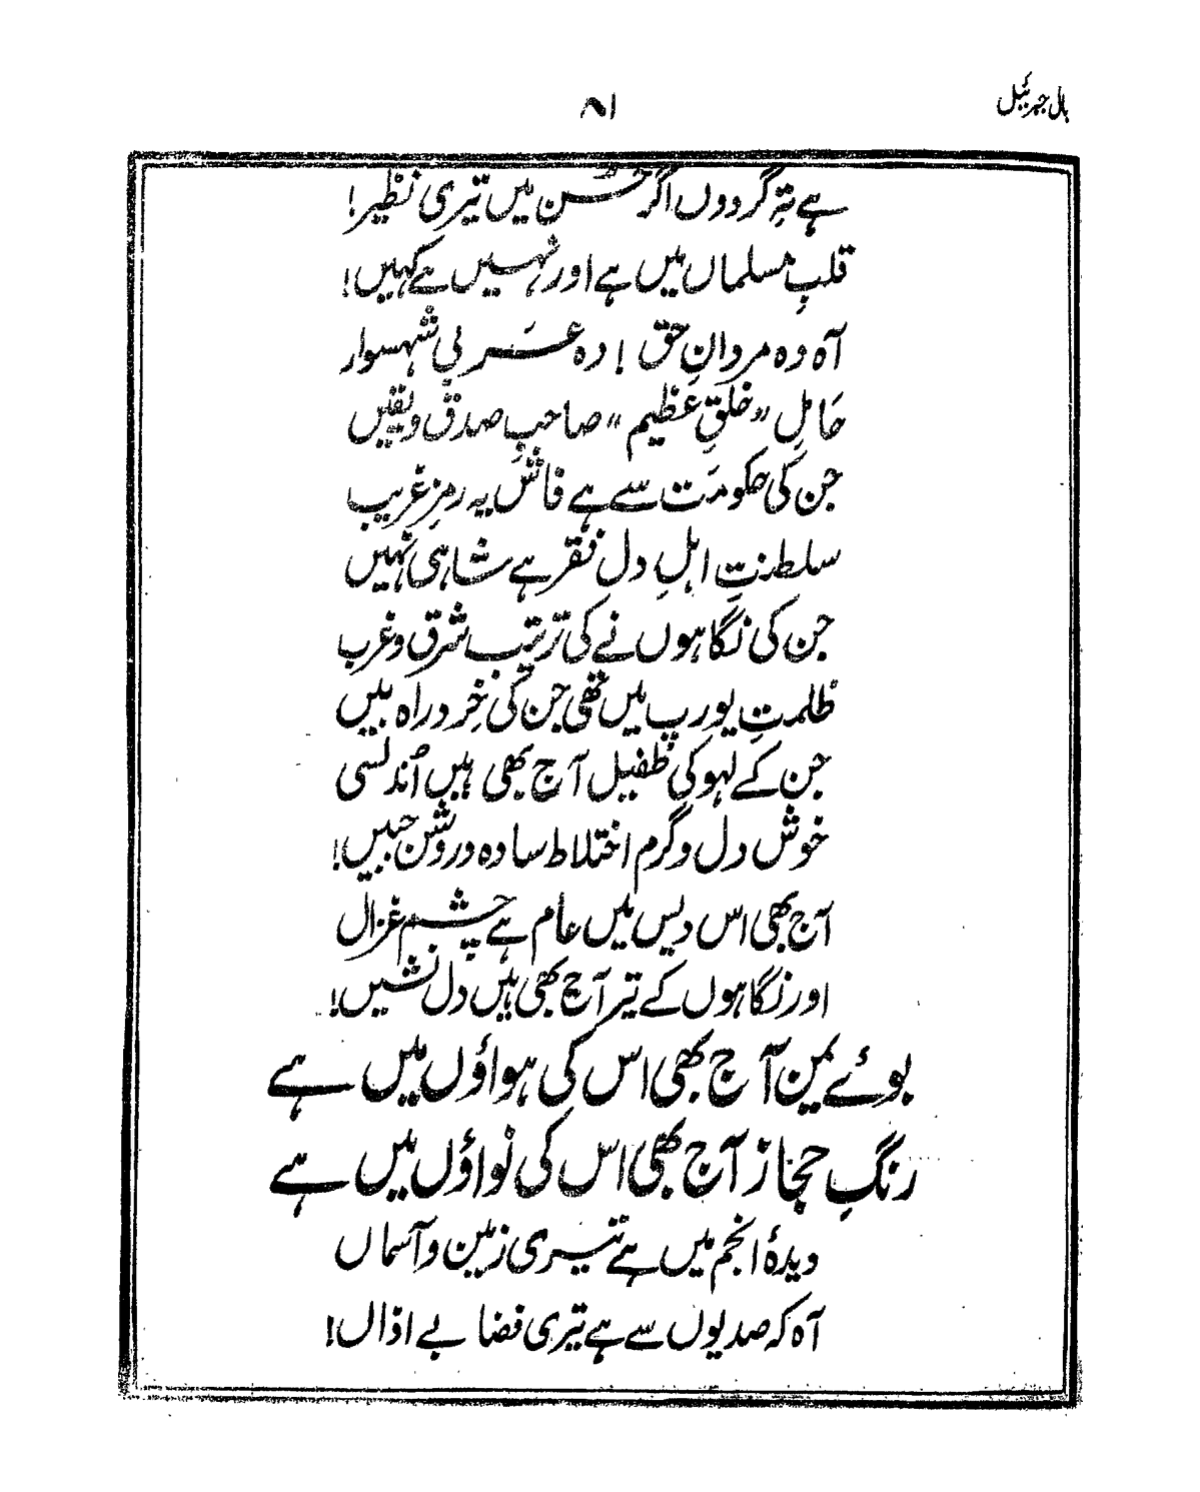 بال جبرئیل
۸۱
ہے تہِ گردوں اگر حسن میں تیری نظیر!
قلبِ مسلماں میں ہے اور نہیں ہے کہیں!
آہ وہ مردانِ حق! وہ عَربی شہسوار
حَاملِ "خلقِ عظیم" صاحبِ صدق و یقیں
جن کی حکومَت سے ہے فاش یہ رمزِ غریب
سلطنتِ اہلِ دل فقر ہے شاہی نہیں
جن کی نگاہوں نے کی تربیتِ شرق و غرب
ظلمتِ یورپ میں تھی جن کی خِرد راہ بیں
جن کے لہو کی طفیل آج بھی ہیں اُندلسی
خوش دل و گرم اختلاط سادہ و روشن جبیں!
آج بھی اس دیس میں عام ہے چشمِ غزال
اور نگاہوں کے تیر آج بھی ہیں دل نشیں!
بوئے یمن آج بھی اس کی ہواؤں میں ہے
رنگِ حجاز آج بھی اس کی نواؤں میں ہے
دیدۂ انجم میں ہے تیری زمین و آسماں
آہ کہ صدیوں سے ہے تیری فضا بے اذاں!